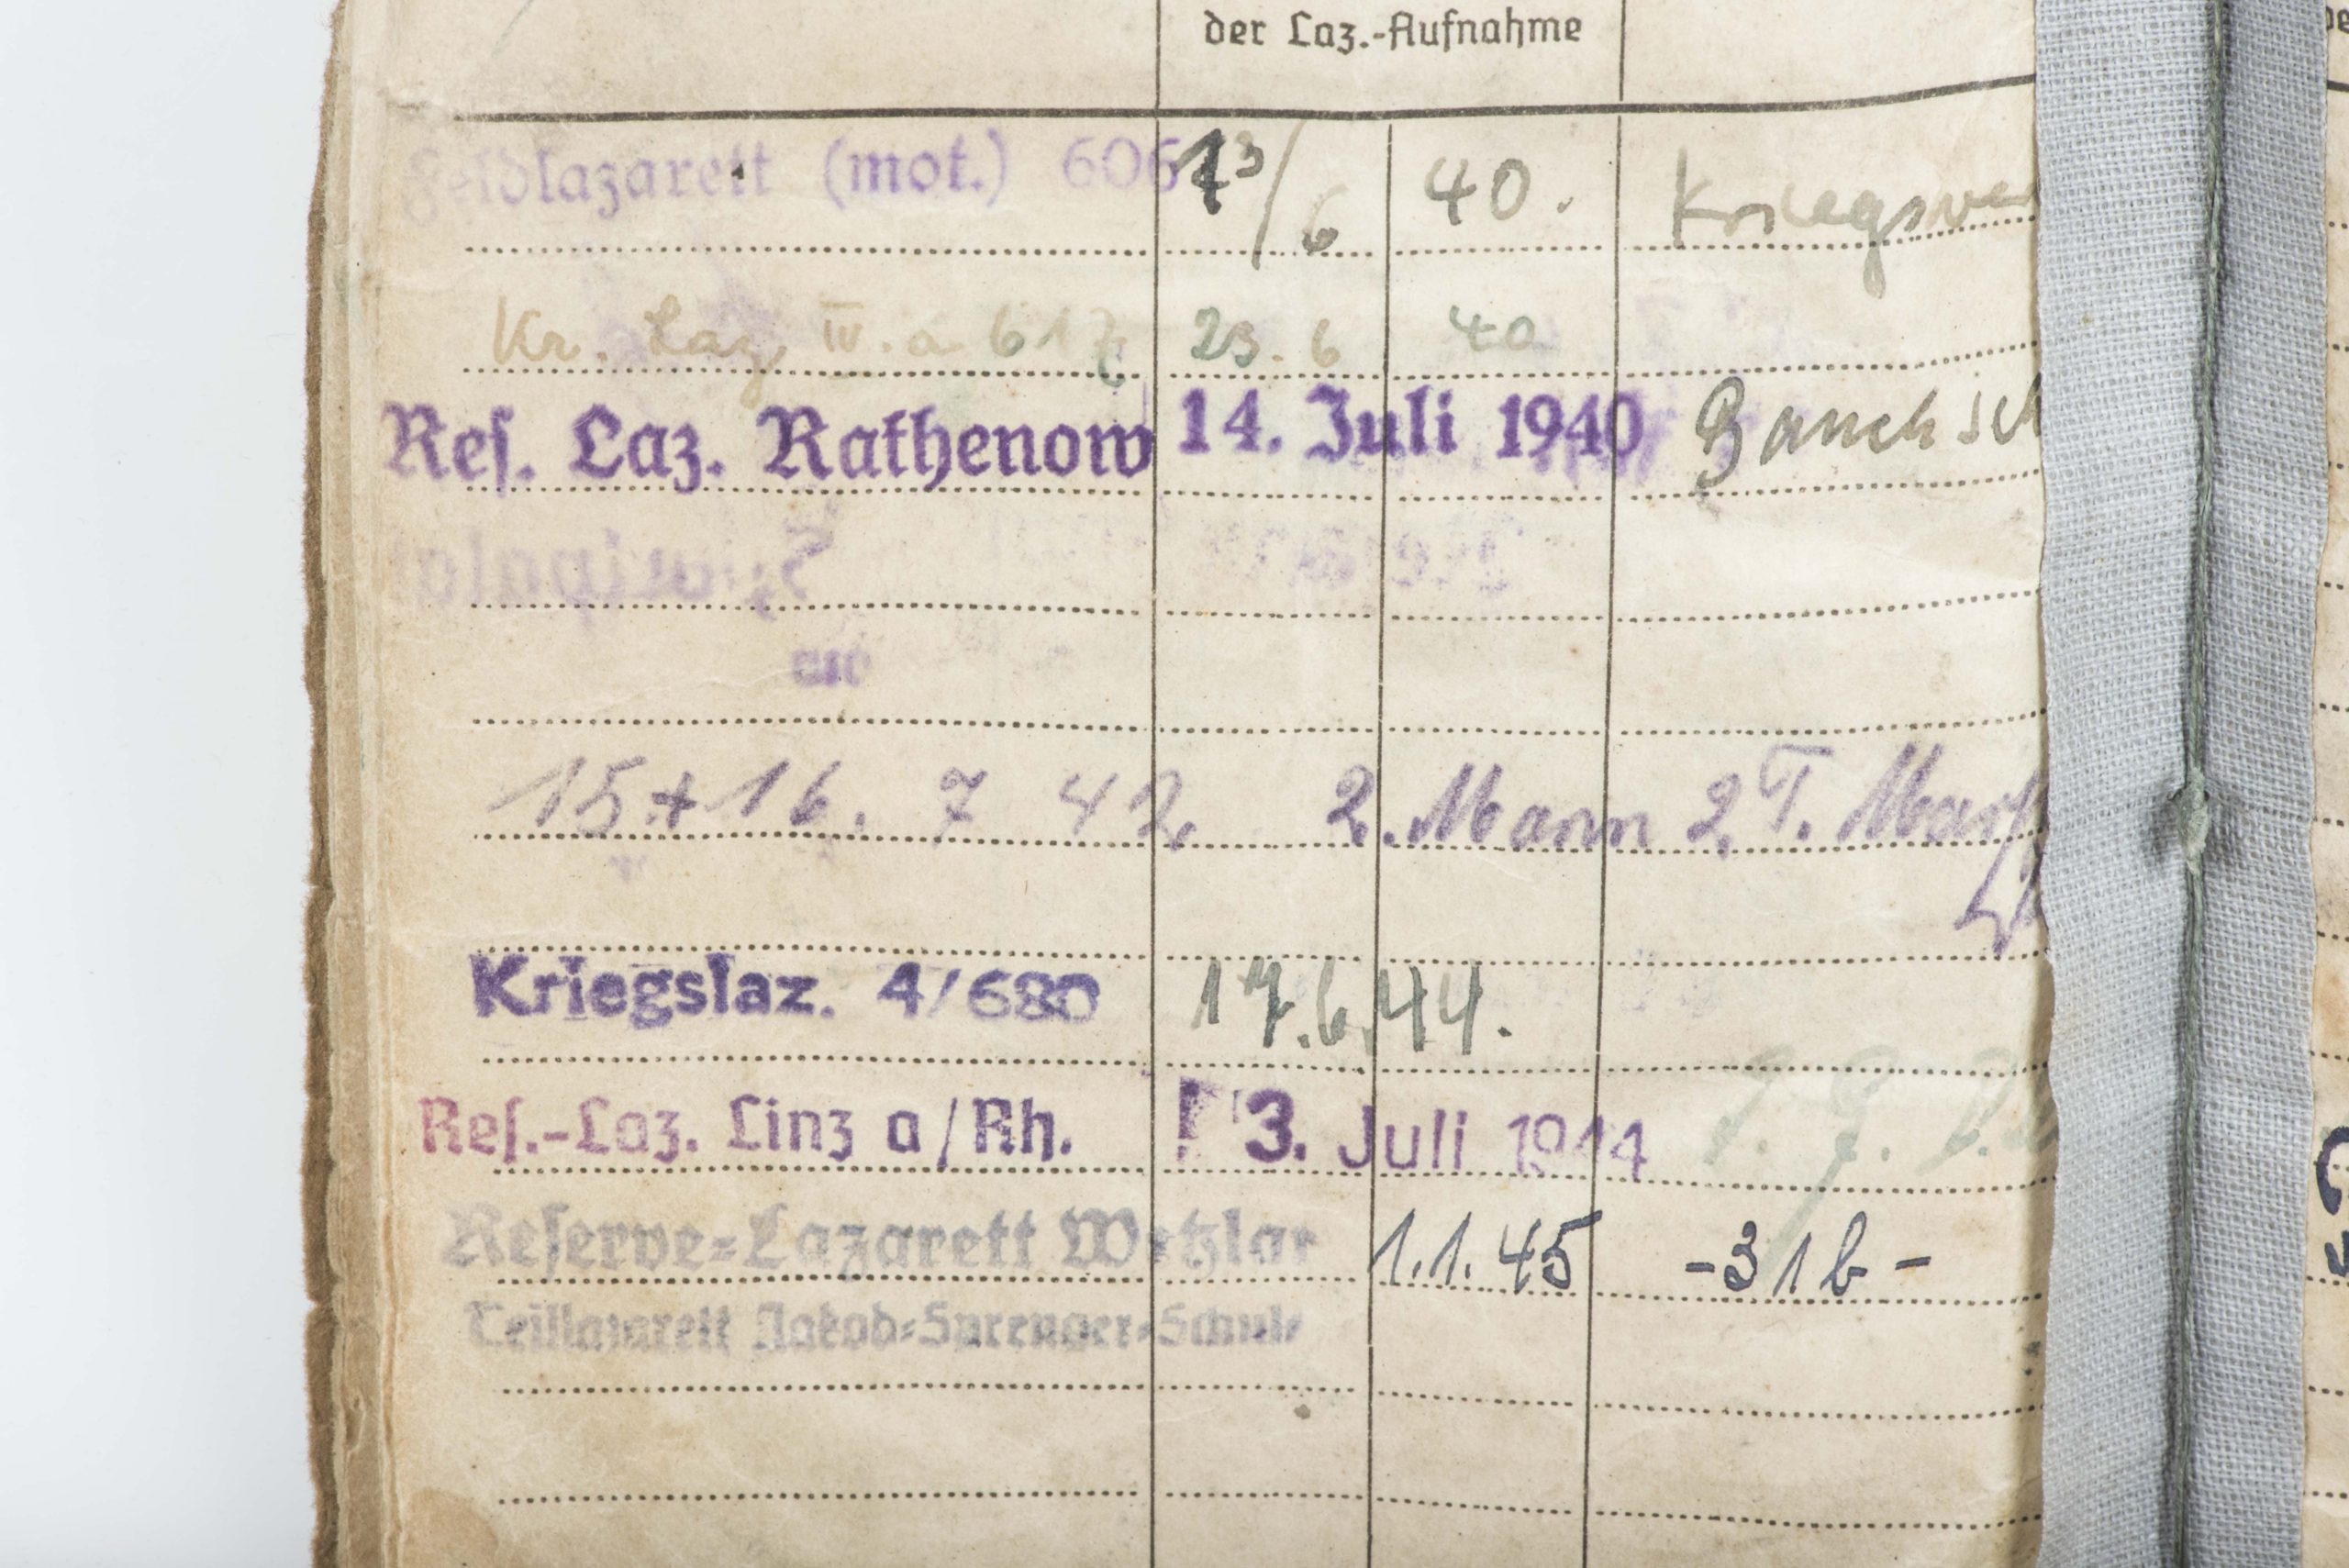 der Laz.-Aufnahme
Feldlazarett (mot.) 606 13/6 40. Kriegsve
Kr. Laz. IV. a 617 23. 6 40
Res. Laz. Rathenow 14. Juli 1940 Bauchsch
15.+16. 7 42. 2. Mann 2 T. Marſ
Kriegslaz. 4/680 17.6.44.
Res.-Laz. Linz a/Rh. 3. Juli 1944
Reserve=Lazarett Wetzlar 1.1.45 -31b-
Teillazarett Jakob=Sprenger=Schule